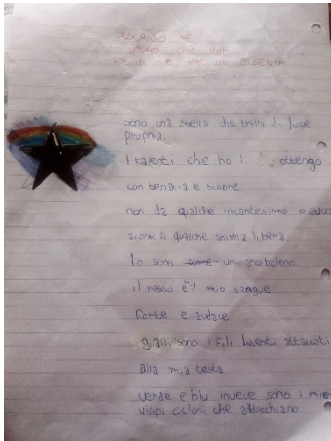 DESCRIVO ME
sono una stella che brilla di luce
propria.
I talenti che ho li ottengo
con tenacia e sudore
non da qualche incantesimo
di qualche anima libera
Io sono come un arcobaleno
il rosso è il mio sangue
forte e audace
gialli sono i fili lucenti attaccati
alla mia testa
verde e blu invece sono i miei
vispi cicloni che adocchiano